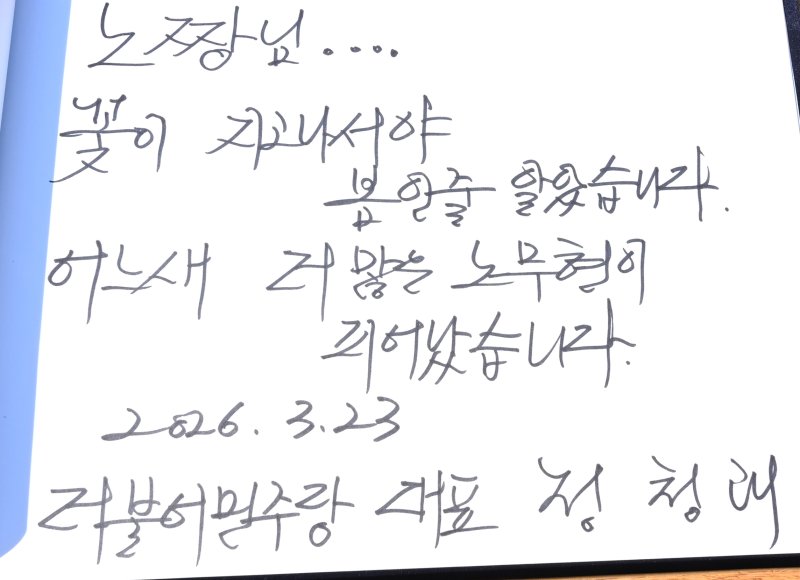 노짱님....
꽃이 지고나서야
봄인줄 알았습니다.
어느새 더 많은 노무현이
피어났습니다.
2026. 3. 23
더불어민주당 대표 정청래